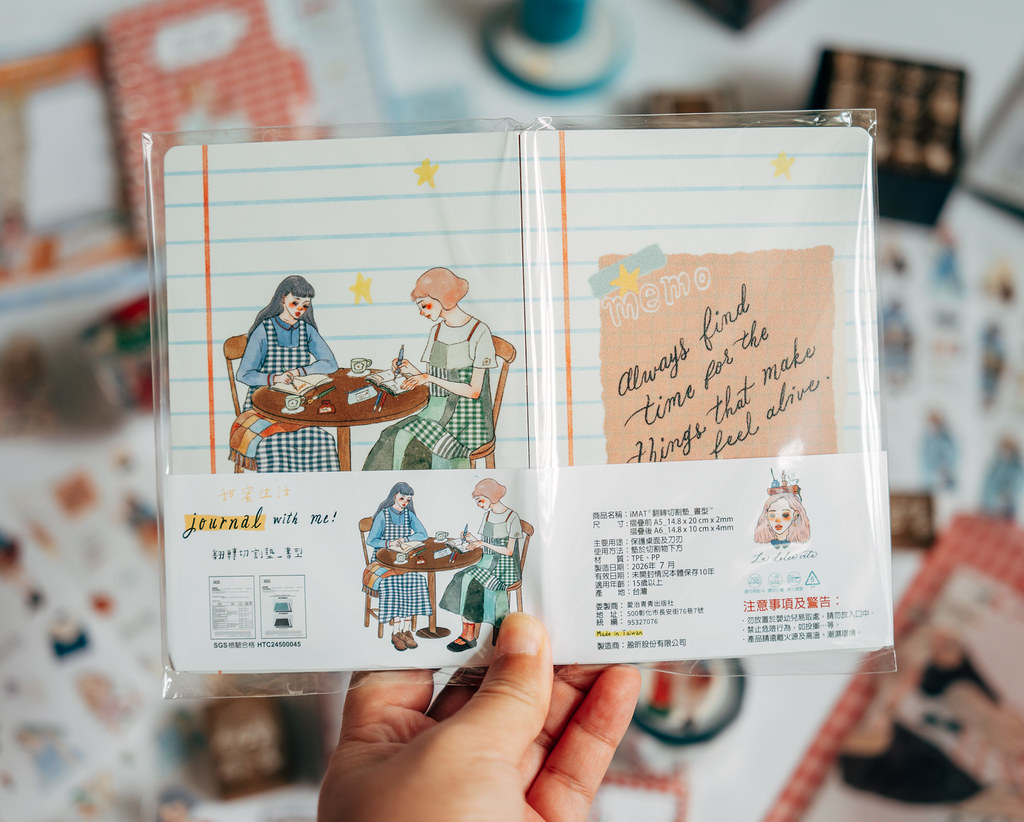 memo
Always find
time for the
things that make
feel alive.
journal with me!
翻轉切割墊_畫型
SGS檢驗合格 HTC24500045
商品名稱：iMAT®翻轉切割墊_畫型™
尺 寸：摺疊前 A5_14.8 x 20 cm x 2mm
摺疊後 A6_14.8 x 10 cm x 4mm
主要用途：保護桌面及刀刃
使用方法：墊於切割物下方
材 質：TPE、PP
製造日期：2026年 7 月
有效日期：未開封情況本體保存10年
適用年齡：15歲以上
產 地：台灣
委製商：愛治青青出版社
地 址：500彰化市長安街76巷7號
統 編：95327076
Made in Taiwan
製造商：盈昕股份有限公司
La dolce vita
注意事項及警告：
．勿放置於嬰幼兒易取處，請勿放入口中。
．禁止危險行為，如投擲…等。
．產品請遠離火源及高溫、潮濕環境。